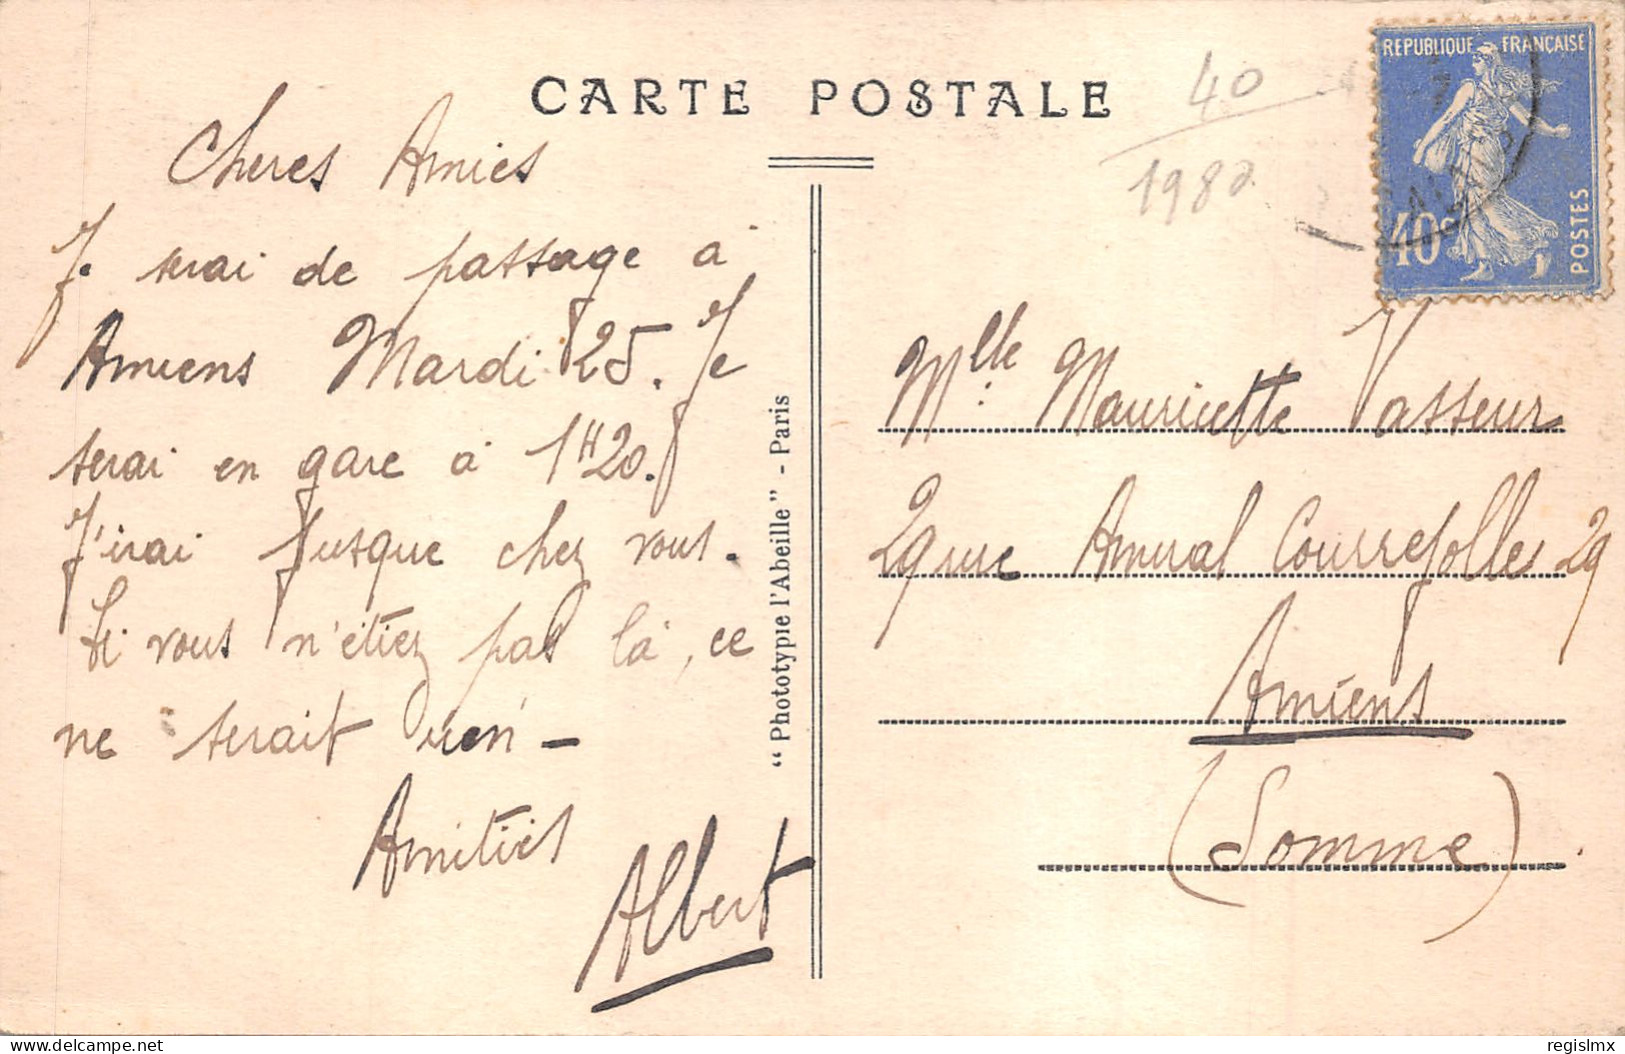 CARTE POSTALE
40
1982
REPUBLIQUE FRANÇAISE
40c
POSTES
Cheres Amies
Je serai de passage à
Amiens Mardi 25. Je
serai en gare à 1H20.
J'irai jusque chez vous.
Si vous n'étiez pas là, ce
ne serait rien -
Amitiés
Albert
"Phototypie l'Abeille" - Paris
Mlle Mauricette Vasseur
29 rue Amiral Courrejolles 29
Amiens
(Somme)
delcampe.net
regislmx